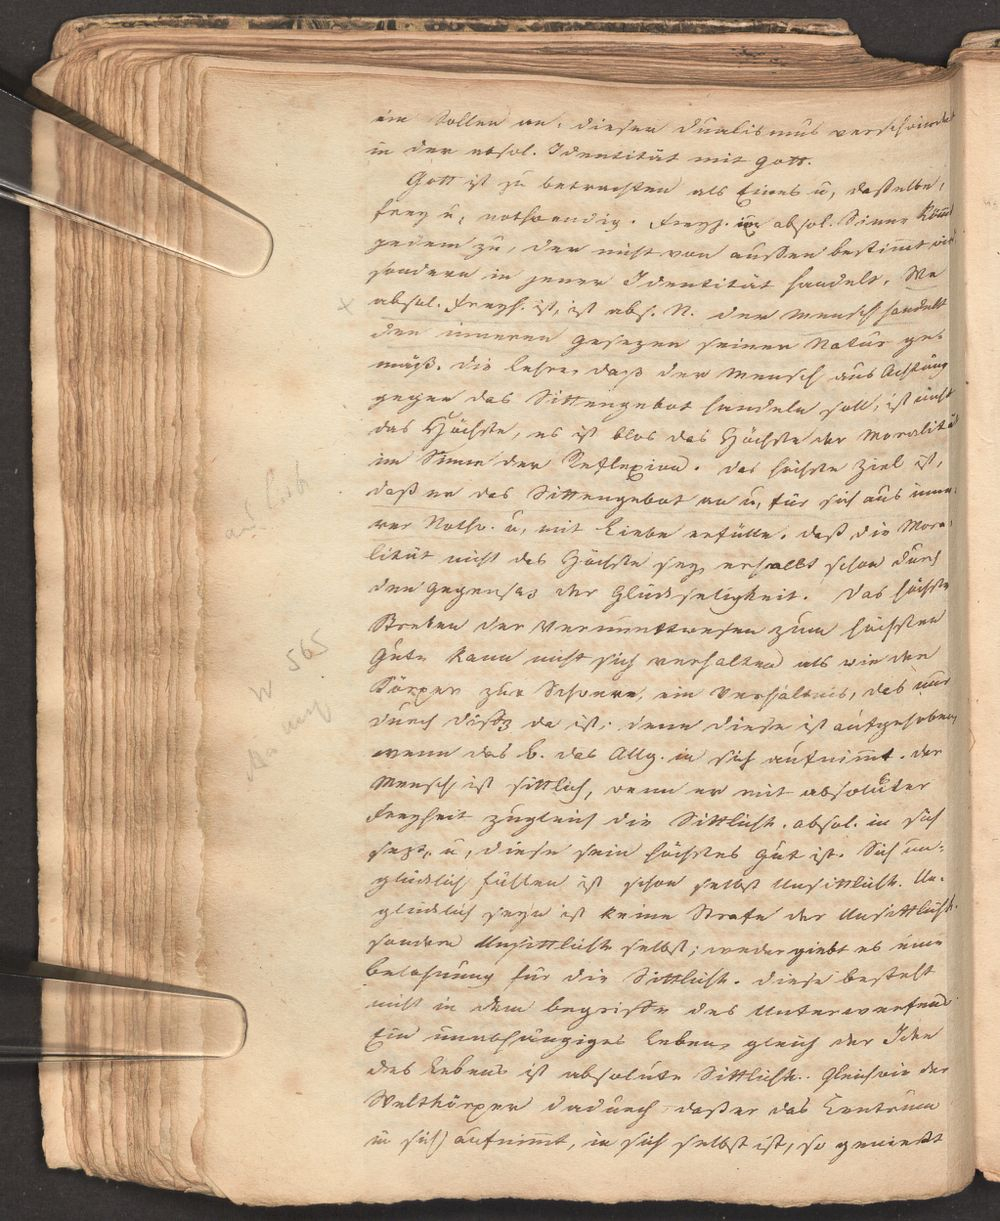 ein Sollen an. dieser Dualismus verschwindet
in der absol. Identität mit Gott.
Gott ist zu betrachten als Eines u, dasselbe,
frey u, nothwendig. Freyh. im absol. Sinne kömmt
jedem zu, der nicht von außen bestimmt wird
sondern in jener Identität handelt. Wo
absol. Freyh. ist, ist abs. N. der Mensch handelt
den inneren Gesezen seiner Natur ge-
mäß. die Lehre, daß der Mensch aus Achtung
gegen das Sittengebot handeln soll, ist nicht
das Höchste, es ist blos das Höchste der Moralität
im Sinne der Reflexion. das höchste Ziel ist,
daß er das Sittengebot an u, für sich aus inne-
rer Nothw. u, mit Liebe erfülle. daß die Mora-
lität nicht das Höchste sey, erhellt schon durch
den Gegensaz der Glückseligkeit. Das höchste
Streben der Vernunftwesen zum höchsten
Gute kann nicht sich verhalten als wie der
Körper zur Schwere, ein Verhältnis, das nur
durch da ist; denn diese ist aufgehoben,
wenn das b. das Allg. in sich aufnimmt. der
Mensch ist sittlich, wenn er mit absoluter
Freyheit zugleich die Sittlichk. absol. in sich
sezt, u, diese sein höchstes Gut ist. Sich un-
glücklich fühlen ist schon selbst Unsittlichk. Un-
glücklich seyn ist keine Strafe der Unsittlichk.
sondern Unsittlichk selbst; weder giebt es eine
Belohnung für die Sittlichk. diese besteht
nicht in dem Begriffe des Unterwerfens
Ein unabhängiges Leben, gleich der Idee
des Lebens ist absolute Sittlichk. Gleichwie der
Weltkörper dadurch daß er das Centrum
in sich aufnimmt, in sich selbst ist, so genießt
565